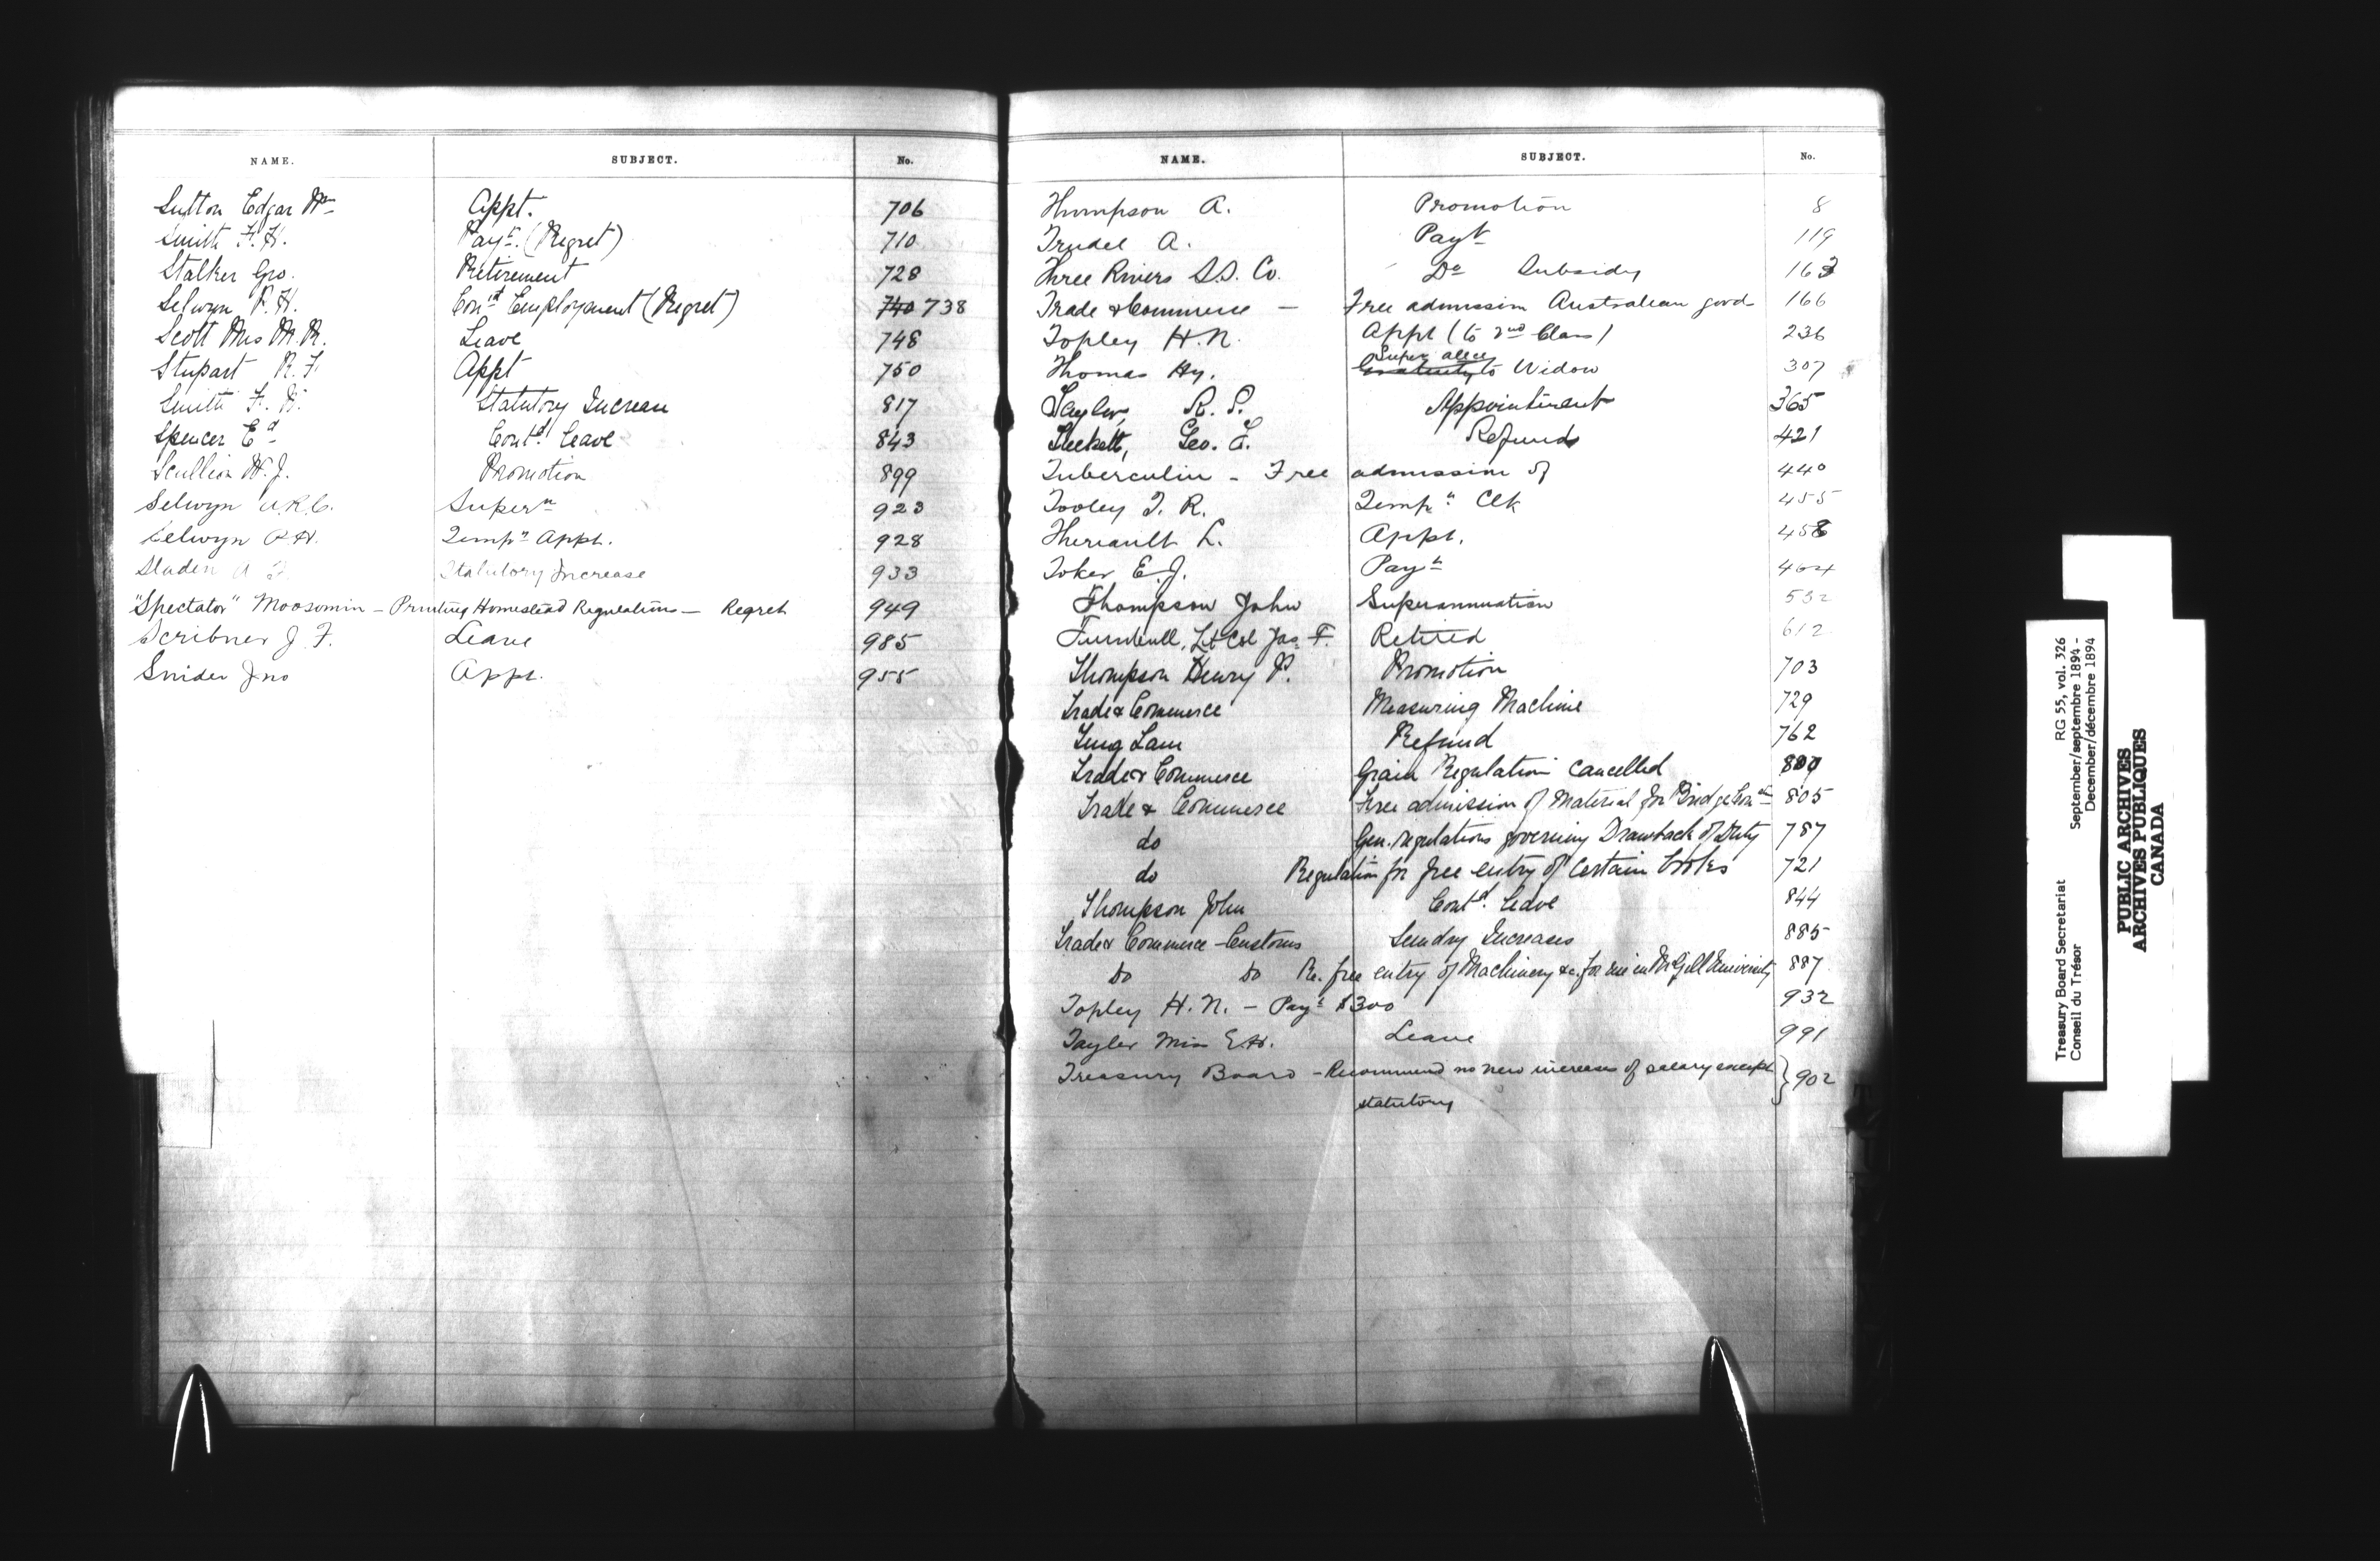 NAME. SUBJECT. No.
Sutton Edgar Wm Appt. 706
Smith F. H. Payt. (Regret) 710
Stalker Geo. Retirement 728
Selwyn P. H. Cont'd Employment (Regret) 740 738
Scott Mrs M. R. Leave 748
Stupart R. F. Appt 750
Smith F. Statutory Increase 817
Spencer Ed Contd. Leave 843
Scullion W. J. Promotion 899
Selwyn A.R.C. Supern 923
Selwyn P.H. Tempy Appt. 928
Sladen A F. Statutory Increase 933
"Spectator" Moosomin - Printing Homestead Regulations - Regret 949
Scribner J. F. Leave 985
Snider Jno Appt. 955
NAME. SUBJECT. No.
Thompson A. Promotion 8
Trudel A. Payt 119
Three Rivers S.S. Co. Do Subsidy 163
Trade & Commerce - Free admission Australian goods 166
Topley H. N. Appt (to 2nd Class) 236
Super allce
Thomas Hy. Gratuity to Widow 307
Taylor, R. S. Appointment 365
Geo. Refund 421
Tuberculin - Free admission of 440
Tooley T. R. Tempy Clk 455
Theriault L. Appt. 458
Toker E. J. Payt 464
Thompson John Superannuation 532
Turnbull, Lt Col Jas. F. Retired 612
Thompson Henry P. Promotion 703
Trade & Commerce Measuring Machine 729
Refund 762
Trade & Commerce Grain Regulation cancelled
Trade & Commerce Free admission of Material for Bridge 805
do Gen. regulations governing Drawback of Duty 787
do Regulation for free entry of certain books 721
Thompson John Contd. Leave 844
Trade & Commerce - Customs Sundry Increases 885
Do Do Re. free entry of Machinery &c. for use in McGill University 887
Topley H. N. - Payt $300 932
Tayler Miss E.H. Leave 991
Treasury Board - Recommend no new increases of salary except } 902
statutory
Treasury Board Secretariat RG 55, vol. 326
Conseil du Trésor September/septembre 1894 -
December/décembre 1894
PUBLIC ARCHIVES
ARCHIVES PUBLIQUES
CANADA